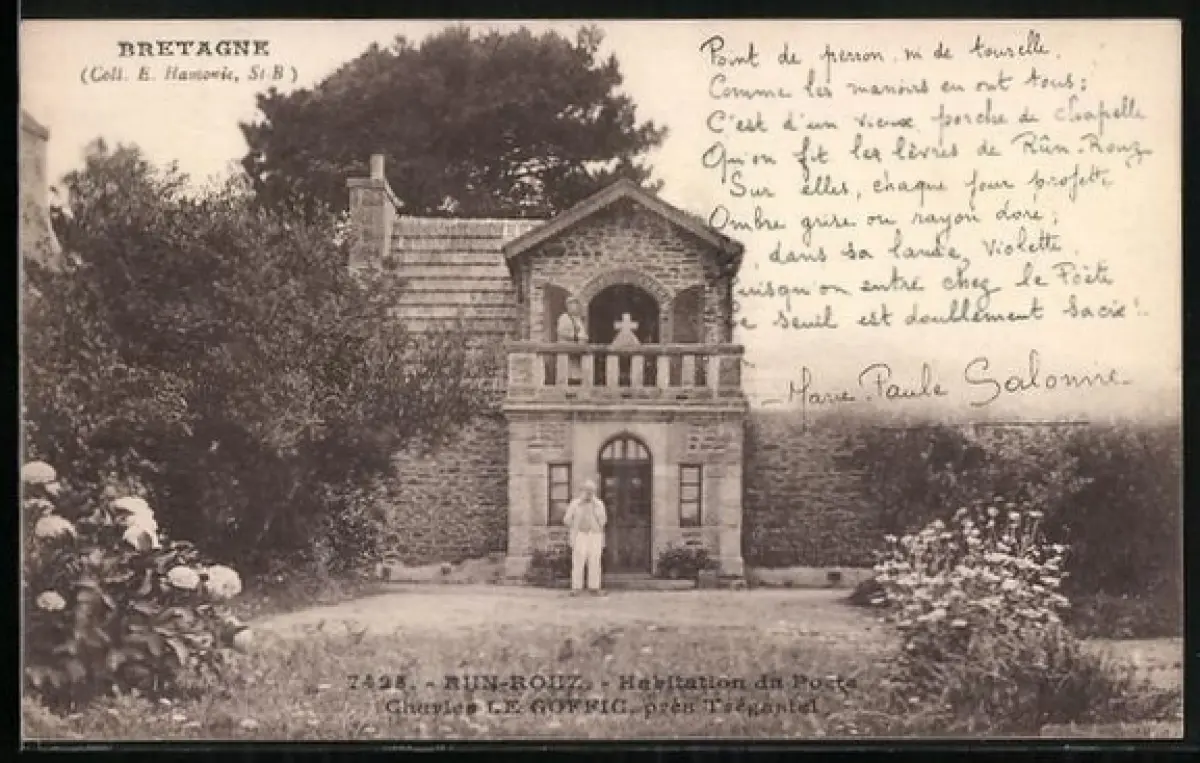 BRETAGNE
(Coll. E. Hamonic, St B)
Point de perron, ni de tourelle,
Comme les manoirs en ont tous;
C'est d'un vieux porche de chapelle
Qu'on fit les lèvres de Rûn-Rouz
Sur elles, chaque jour projette
Ombre grise ou rayon doré;
dans sa lande, violette,
uisqu'on entre chez le Poète
e seuil est doublement sacré!..
Marie-Paule Salonne
7428. - RUN-ROUZ. - Habitation du Poète
Charles LE GOFFIC, près Trégastel